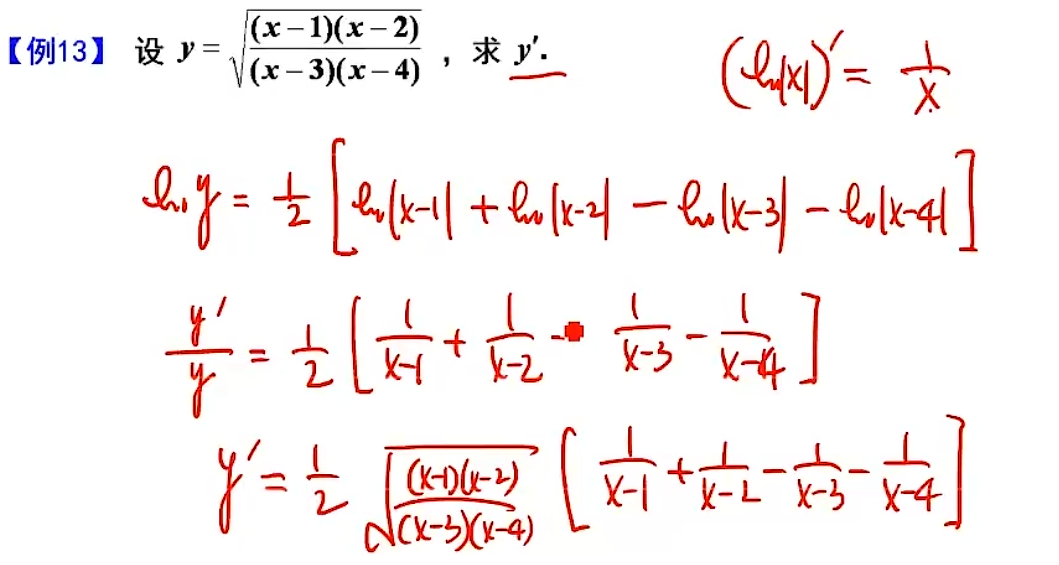 【例13】 设 y = √((x−1)(x−2)/((x−3)(x−4))) , 求 y′.
(ln|x|)′ = 1/x
ln y = 1/2 [ln|x-1| + ln|x-2| - ln|x-3| - ln|x-4|]
y′/y = 1/2 [1/(x-1) + 1/(x-2) - 1/(x-3) - 1/(x-4)]
y′ = 1/2 √((x-1)(x-2)/((x-3)(x-4))) [1/(x-1) + 1/(x-2) - 1/(x-3) - 1/(x-4)]